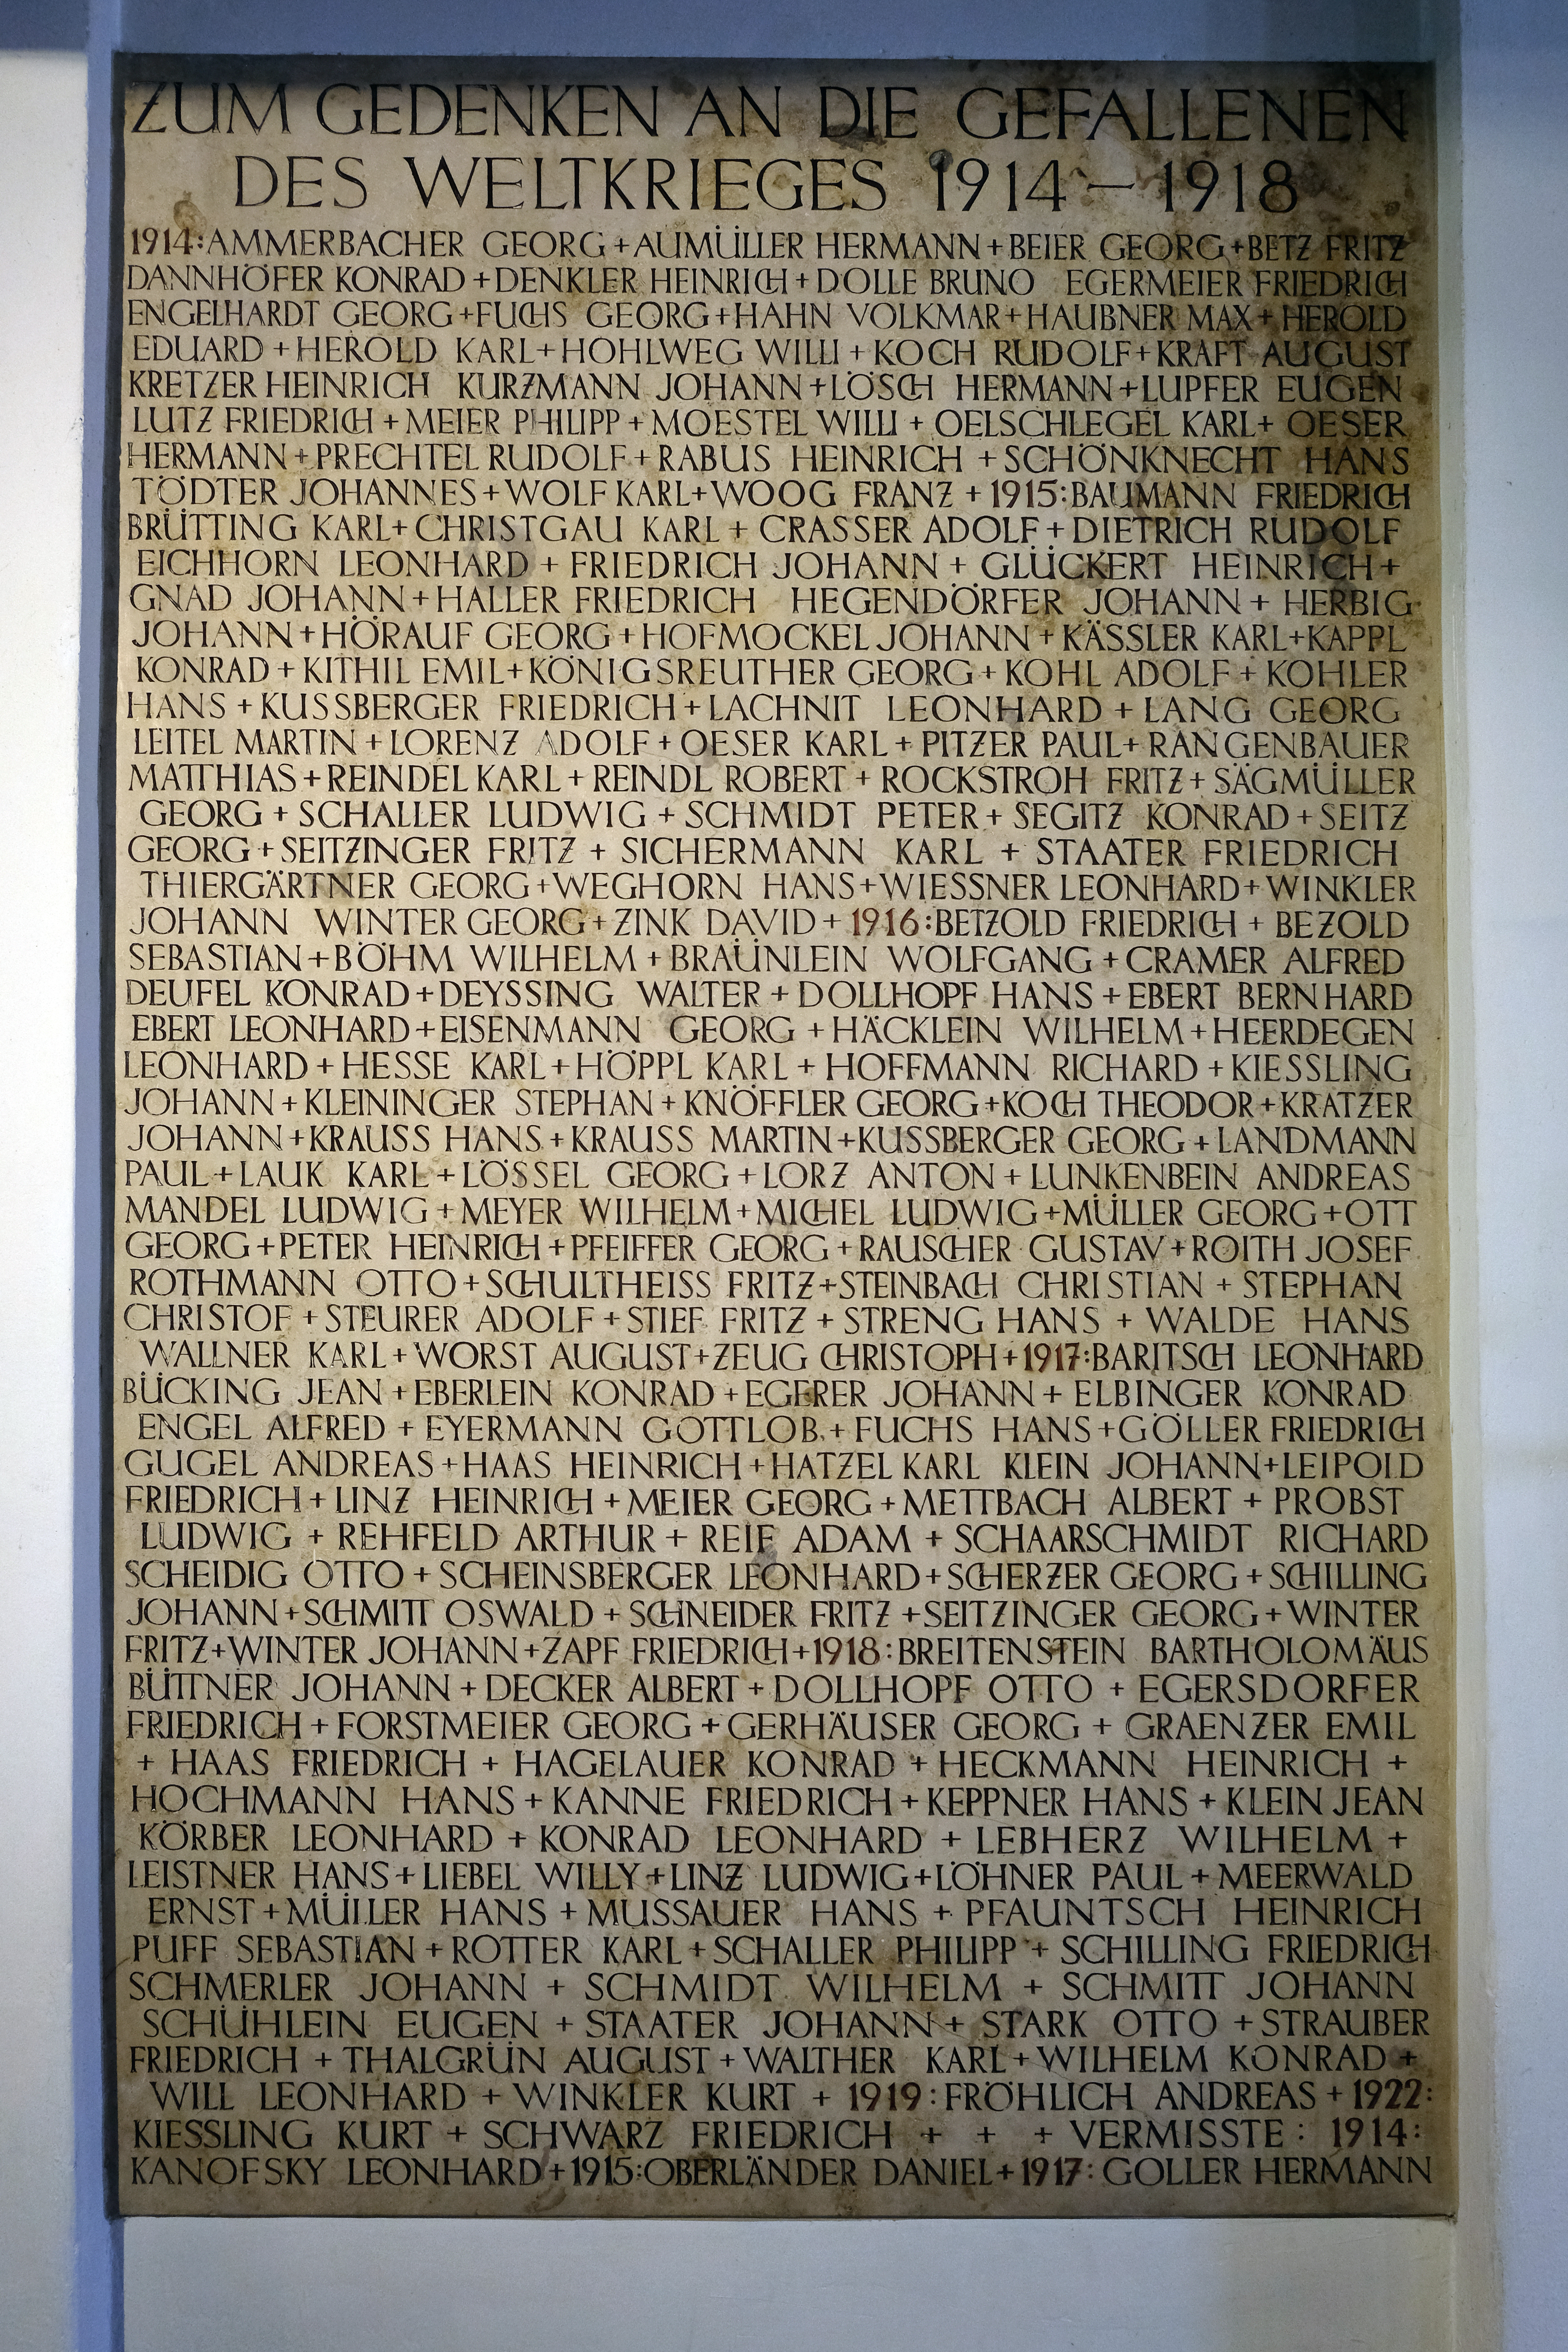 ZUM GEDENKEN AN DIE GEFALLENEN
DES WELTKRIEGES 1914 – 1918
1914: AMMERBACHER GEORG + AUMÜLLER HERMANN + BEIER GEORG + BETZ FRITZ
DANNHÖFER KONRAD + DENKLER HEINRICH + DOLLE BRUNO EGERMEIER FRIEDRICH
ENGELHARDT GEORG + FUCHS GEORG + HAHN VOLKMAR + HAUBNER MAX + HEROLD
EDUARD + HEROLD KARL + HOHLWEG WILLI + KOCH RUDOLF + KRAFT AUGUST
KRETZER HEINRICH KURZMANN JOHANN + LÖSCH HERMANN + LUPFER EUGEN
LUTZ FRIEDRICH + MEIER PHILIPP + MOESTEL WILLI + OELSCHLEGEL KARL + OESER
HERMANN + PRECHTEL RUDOLF + RABUS HEINRICH + SCHÖNKNECHT HANS
TÖDTER JOHANNES + WOLF KARL + WOOG FRANZ + 1915: BAUMANN FRIEDRICH
BRÜTTING KARL + CHRISTGAU KARL + CRASSER ADOLF + DIETRICH RUDOLF
EICHHORN LEONHARD + FRIEDRICH JOHANN + GLÜCKERT HEINRICH +
GNAD JOHANN + HALLER FRIEDRICH HEGENDÖRFER JOHANN + HERBIG
JOHANN + HÖRAUF GEORG + HOFMOCKEL JOHANN + KÄSSLER KARL + KAPPL
KONRAD + KITHIL EMIL + KÖNIGSREUTHER GEORG + KOHL ADOLF + KOHLER
HANS + KUSSBERGER FRIEDRICH + LACHNIT LEONHARD + LANG GEORG
LEITEL MARTIN + LORENZ ADOLF + OESER KARL + PITZER PAUL + RANGENBAUER
MATTHIAS + REINDEL KARL + REINDL ROBERT + ROCKSTROH FRITZ + SÄGMÜLLER
GEORG + SCHALLER LUDWIG + SCHMIDT PETER + SEGITZ KONRAD + SEITZ
GEORG + SEITZINGER FRITZ + SICHERMANN KARL + STAATER FRIEDRICH
THIERGÄRTNER GEORG + WEGHORN HANS + WIESSNER LEONHARD + WINKLER
JOHANN WINTER GEORG + ZINK DAVID + 1916: BETZOLD FRIEDRICH + BEZOLD
SEBASTIAN + BÖHM WILHELM + BRAÜNLEIN WOLFGANG + CRAMER ALFRED
DEUFEL KONRAD + DEYSSING WALTER + DOLLHOPF HANS + EBERT BERNHARD
EBERT LEONHARD + EISENMANN GEORG + HÄCKLEIN WILHELM + HEERDEGEN
LEONHARD + HESSE KARL + HÖPPL KARL + HOFFMANN RICHARD + KIESSLING
JOHANN + KLEININGER STEPHAN + KNÖFFLER GEORG + KOCH THEODOR + KRATZER
JOHANN + KRAUSS HANS + KRAUSS MARTIN + KUSSBERGER GEORG + LANDMANN
PAUL + LAUK KARL + LÖSSEL GEORG + LORZ ANTON + LUNKENBEIN ANDREAS
MANDEL LUDWIG + MEYER WILHELM + MICHEL LUDWIG + MÜLLER GEORG + OTT
GEORG + PETER HEINRICH + PFEIFFER GEORG + RAUSCHER GUSTAV + ROITH JOSEF
ROTHMANN OTTO + SCHULTHEISS FRITZ + STEINBACH CHRISTIAN + STEPHAN
CHRISTOF + STEURER ADOLF + STIEF FRITZ + STRENG HANS + WALDE HANS
WALLNER KARL + WORST AUGUST + ZEUG CHRISTOPH + 1917: BARITSCH LEONHARD
BÜCKING JEAN + EBERLEIN KONRAD + EGERER JOHANN + ELBINGER KONRAD
ENGEL ALFRED + EYERMANN GOTTLOB + FUCHS HANS + GÖLLER FRIEDRICH
GUGEL ANDREAS + HAAS HEINRICH + HATZEL KARL KLEIN JOHANN + LEIPOLD
FRIEDRICH + LINZ HEINRICH + MEIER GEORG + METTBACH ALBERT + PROBST
LUDWIG + REHFELD ARTHUR + REIF ADAM + SCHAARSCHMIDT RICHARD
SCHEIDIG OTTO + SCHEINSBERGER LEONHARD + SCHERZER GEORG + SCHILLING
JOHANN + SCHMITT OSWALD + SCHNEIDER FRITZ + SEITZINGER GEORG + WINTER
FRITZ + WINTER JOHANN + ZAPF FRIEDRICH + 1918: BREITENSTEIN BARTHOLOMÄUS
BÜTTNER JOHANN + DECKER ALBERT + DOLLHOPF OTTO + EGERSDORFER
FRIEDRICH + FORSTMEIER GEORG + GERHÄUSER GEORG + GRAENZER EMIL
+ HAAS FRIEDRICH + HAGELAUER KONRAD + HECKMANN HEINRICH +
HOCHMANN HANS + KANNE FRIEDRICH + KEPPNER HANS + KLEIN JEAN
KÖRBER LEONHARD + KONRAD LEONHARD + LEBHERZ WILHELM +
LEISTNER HANS + LIEBEL WILLY + LINZ LUDWIG + LÖHNER PAUL + MEERWALD
ERNST + MÜLLER HANS + MUSSAUER HANS + PFAUNTSCH HEINRICH
PUFF SEBASTIAN + ROTTER KARL + SCHALLER PHILIPP + SCHILLING FRIEDRICH
SCHMERLER JOHANN + SCHMIDT WILHELM + SCHMITT JOHANN
SCHÜHLEIN EUGEN + STAATER JOHANN + STARK OTTO + STRAUBER
FRIEDRICH + THALGRÜN AUGUST + WALTHER KARL + WILHELM KONRAD +
WILL LEONHARD + WINKLER KURT + 1919: FRÖHLICH ANDREAS + 1922:
KIESSLING KURT + SCHWARZ FRIEDRICH + + + VERMISSTE: 1914:
KANOFSKY LEONHARD + 1915: OBERLÄNDER DANIEL + 1917: GOLLER HERMANN